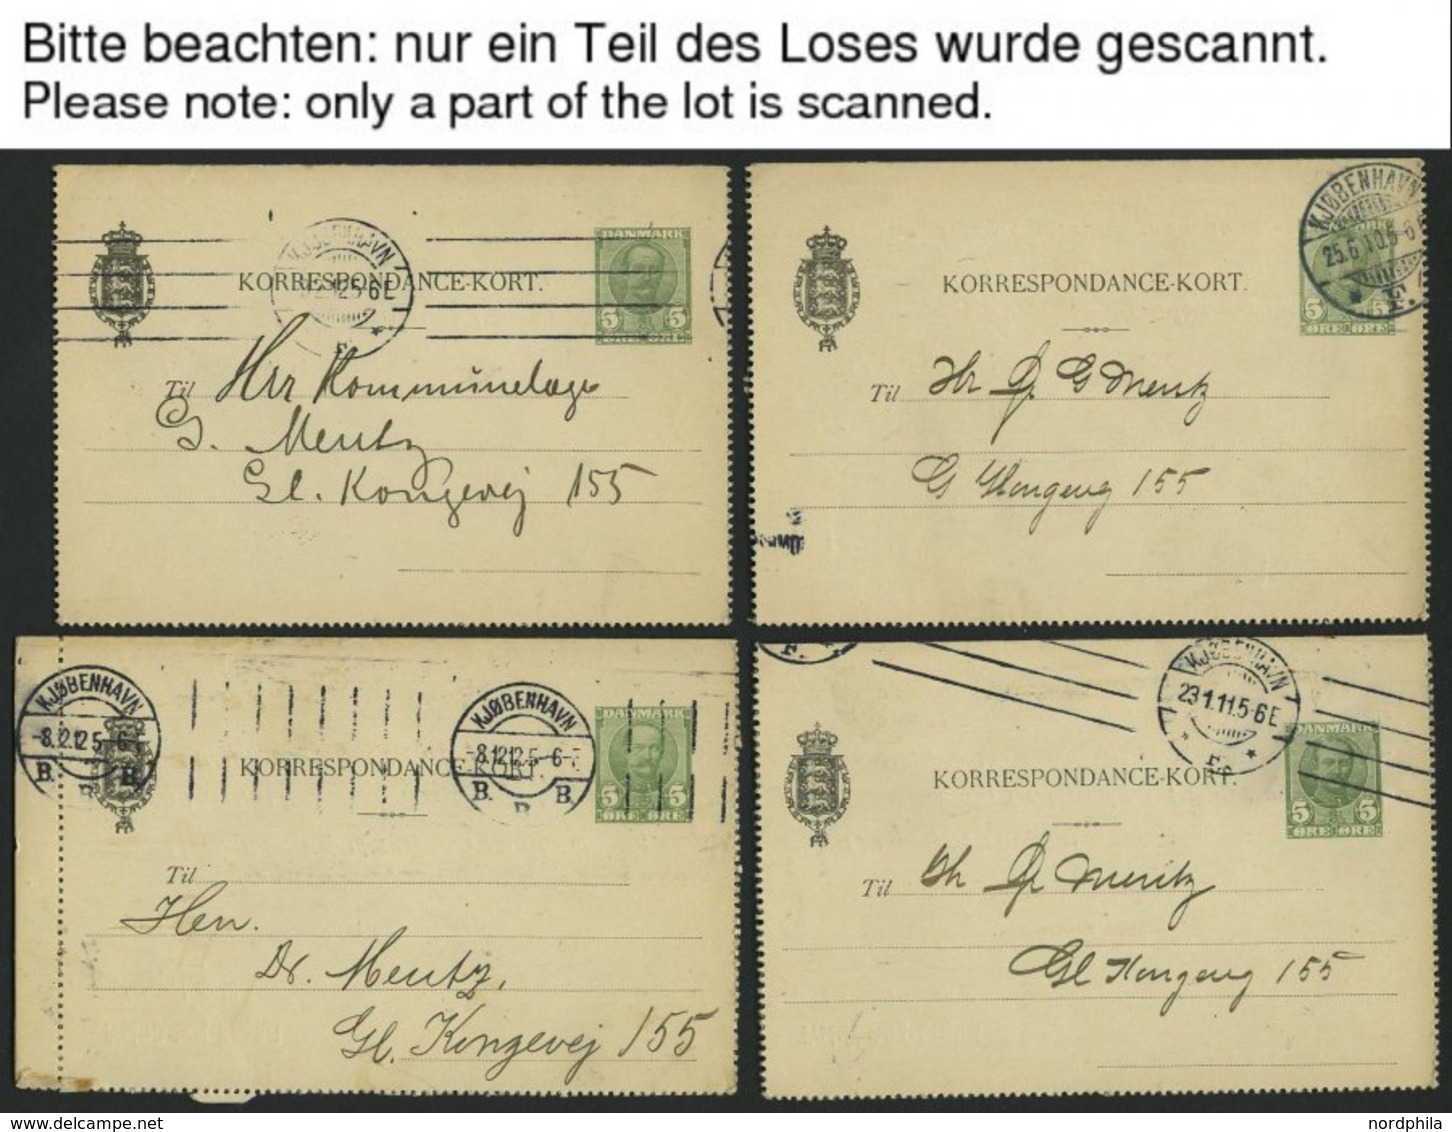 Bitte beachten: nur ein Teil des Loses wurde gescannt.
Please note: only a part of the lot is scanned.
KJØBENHAVN
12 5-6 E
DANMARK
KORRESPONDANCE-KORT.
5 5
Til Herr Kommunelæge
G. Mentz
Gl. Kongevej 155
KJØBENHAVN
25.6.10.5-6 E
F.
KORRESPONDANCE-KORT.
5 5
ØRE ØRE
Til Hr Dr G Mentz
G Kongevej 155
KJØBENHAVN
-8.12.12 5-6-
B. B B.
KJØBENHAVN
-8.12.12 5-6-
B. B B.
DANMARK
KORRESPONDANCE-KORT.
5 5
ØRE ØRE
Til
Herr.
Dr. Mentz,
Gl. Kongevej 155
KJØBENHAVN
23.1.11.5-6 E
F.
DANMARK
KORRESPONDANCE-KORT.
5 5
ØRE ØRE
Til Hr Dr Mentz
Gl Kongevej 155
nordphila